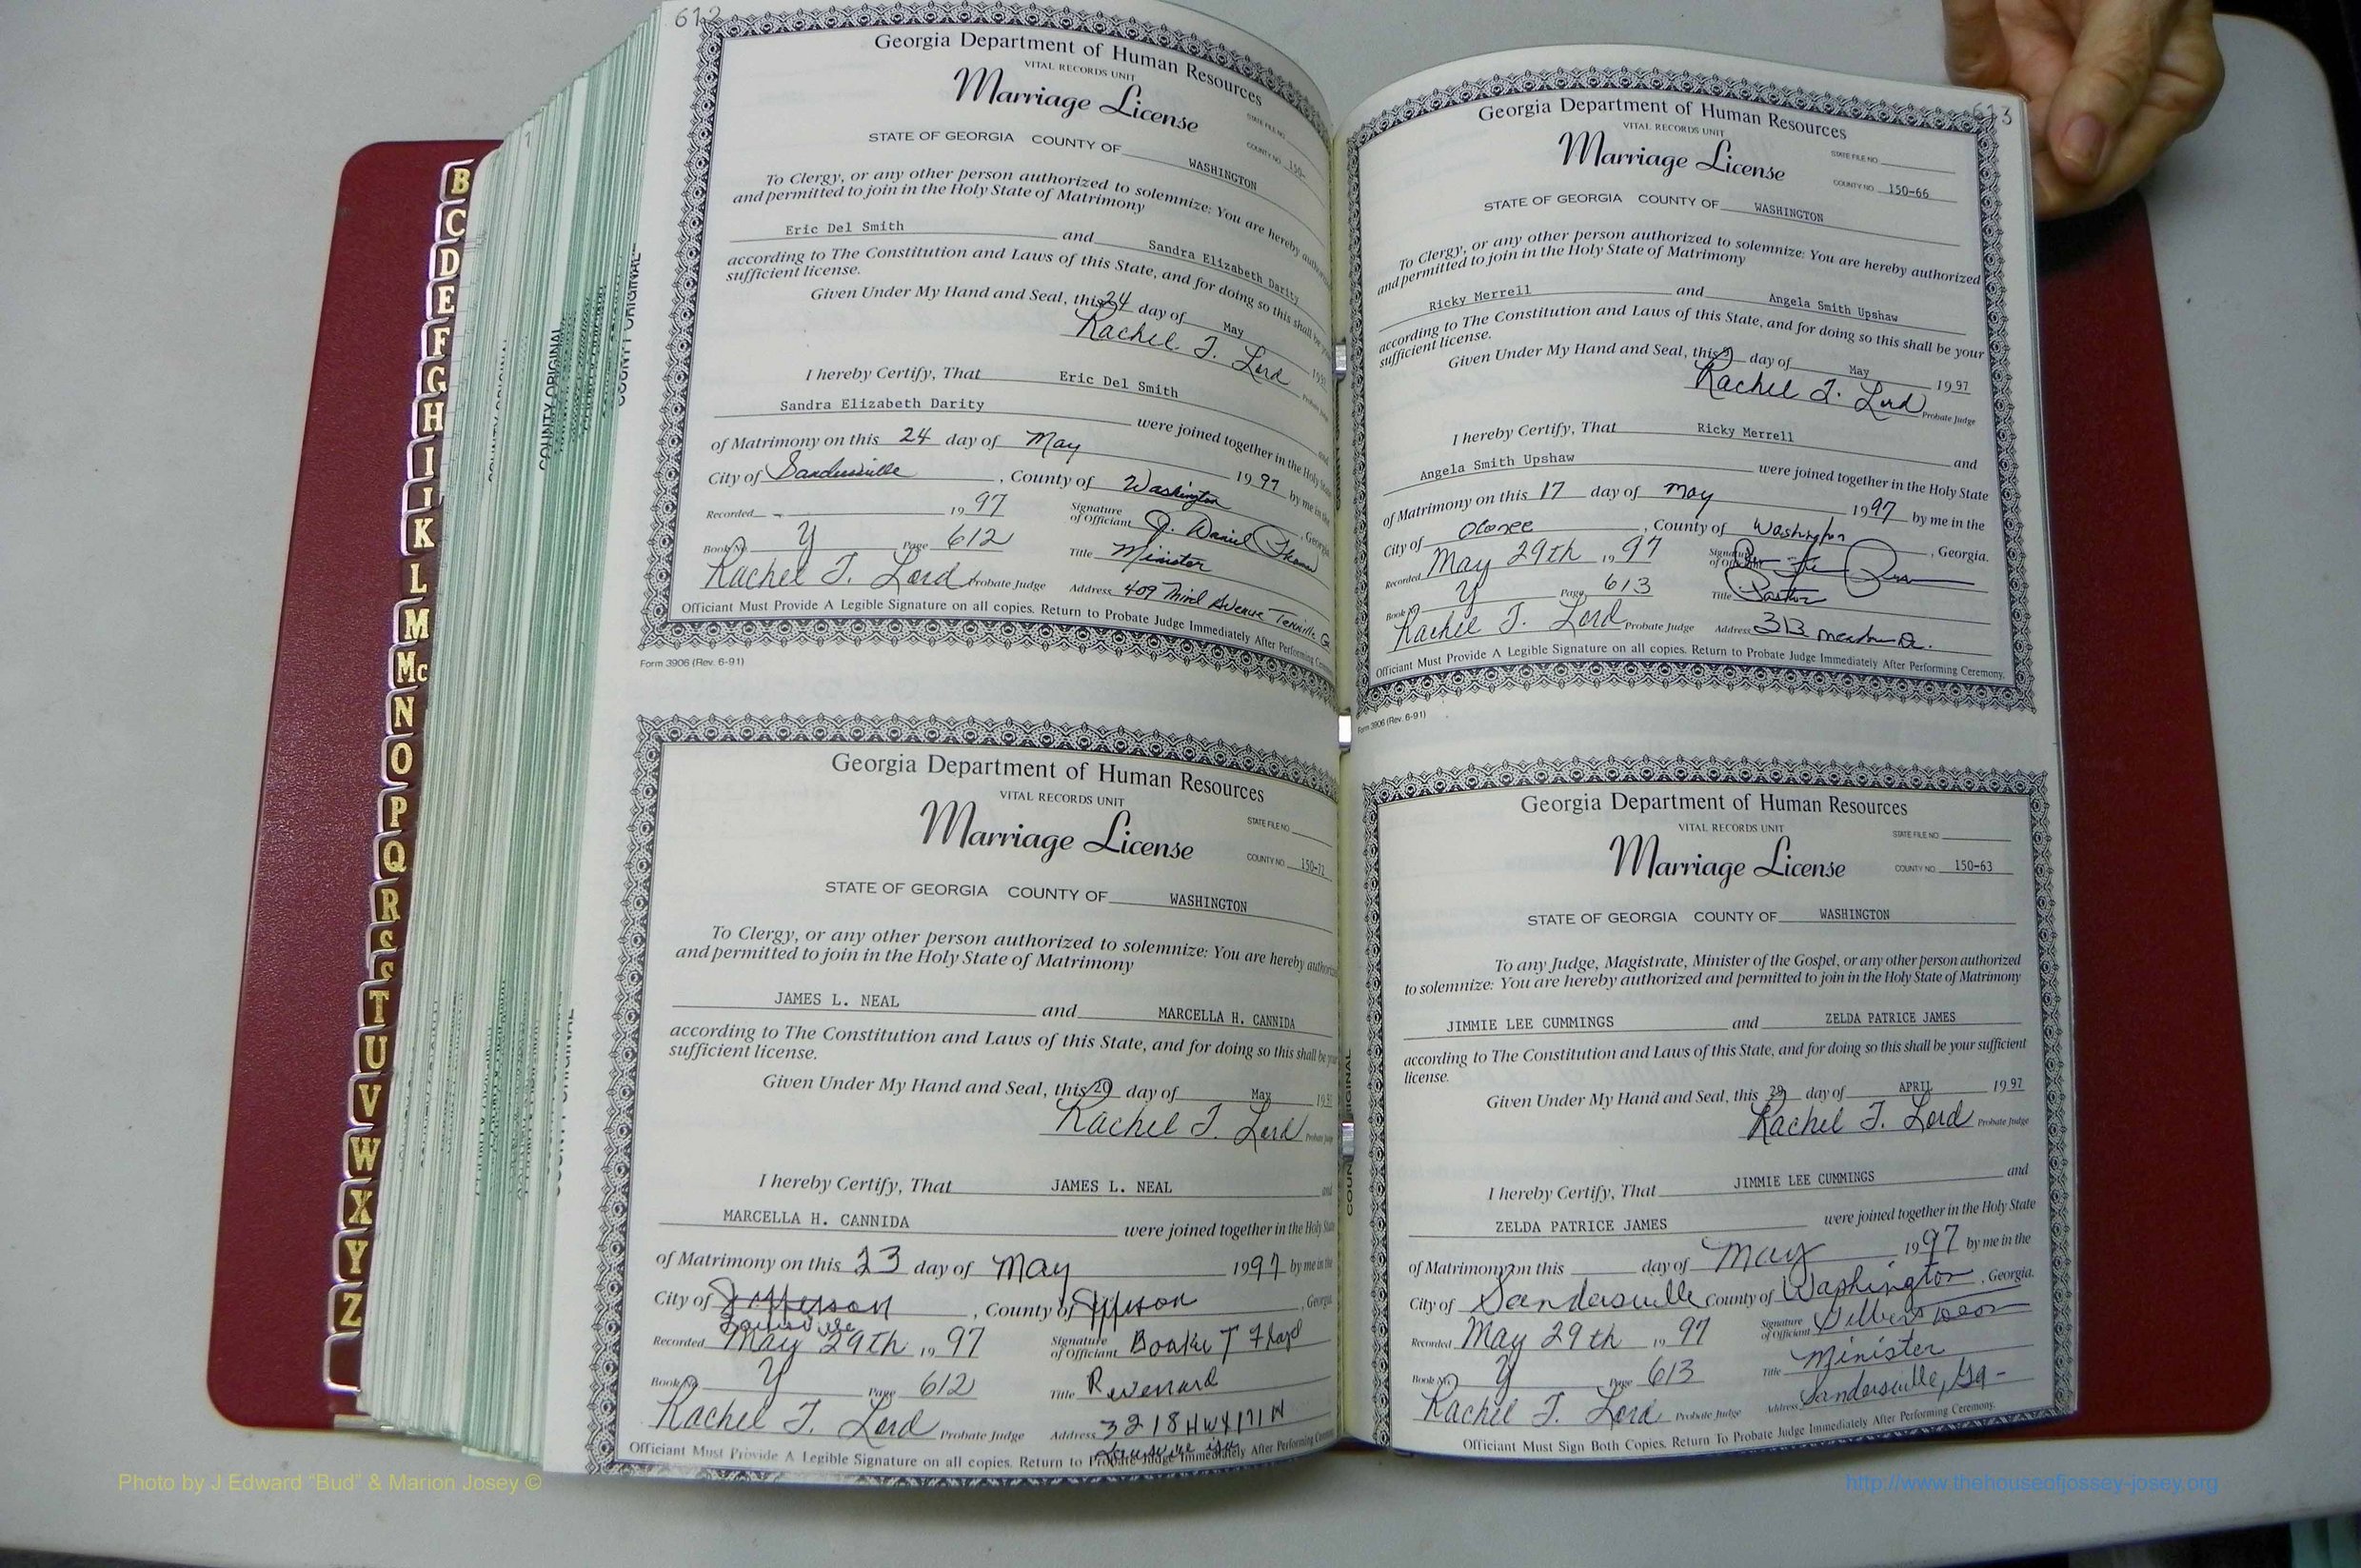 612
Georgia Department of Human Resources
VITAL RECORDS UNIT
Marriage License
STATE FILE NO.
COUNTY NO. 150-
STATE OF GEORGIA COUNTY OF WASHINGTON
To Clergy, or any other person authorized to solemnize: You are hereby
and permitted to join in the Holy State of Matrimony
Eric Del Smith and Sandra Elizabeth Darity
according to The Constitution and Laws of this State, and for doing so this shall be
sufficient license.
Given Under My Hand and Seal, this 24 day of May
Rachel T. Lord
I hereby Certify, That Eric Del Smith
Sandra Elizabeth Darity were joined together in the Holy
of Matrimony on this 24 day of May 1997 by me in the
City of Sandersville, County of Washington, Georgia
Recorded 1997 Signature of Officiant J. Daniel
Book No. Y Page 612 Title Minister
Rachel T. Lord Probate Judge Address 409 Third Avenue Tennille
Officiant Must Provide A Legible Signature on all copies. Return to Probate Judge Immediately After Performing
Form 3906 (Rev. 6-91)
Georgia Department of Human Resources
VITAL RECORDS UNIT
Marriage License
STATE FILE NO.
COUNTY NO. 150-72
STATE OF GEORGIA COUNTY OF WASHINGTON
To Clergy, or any other person authorized to solemnize: You are hereby
and permitted to join in the Holy State of Matrimony
JAMES L. NEAL and MARCELLA H. CANNIDA
according to The Constitution and Laws of this State, and for doing so this shall be
sufficient license.
Given Under My Hand and Seal, this 20 day of May
Rachel T. Lord
I hereby Certify, That JAMES L. NEAL and
MARCELLA H. CANNIDA were joined together in the Holy State
of Matrimony on this 23 day of May 1997 by me in the
City of Jefferson, County of Jefferson, Georgia
Louisville
Recorded May 29th, 1997 Signature of Officiant Booker T Floyd
Book No. Y Page 612 Title Reverend
Rachel T. Lord Probate Judge Address 3218 HWY 171 N
Officiant Must Provide A Legible Signature on all copies. Return to Probate Judge Immediately After Performing
613
Georgia Department of Human Resources
VITAL RECORDS UNIT
Marriage License
STATE FILE NO.
COUNTY NO. 150-66
STATE OF GEORGIA COUNTY OF WASHINGTON
To Clergy, or any other person authorized to solemnize: You are hereby authorized
and permitted to join in the Holy State of Matrimony
Ricky Merrell and Angela Smith Upshaw
according to The Constitution and Laws of this State, and for doing so this shall be your
sufficient license.
Given Under My Hand and Seal, this 9 day of May 1997
Rachel T. Lord Probate Judge
I hereby Certify, That Ricky Merrell and
Angela Smith Upshaw were joined together in the Holy State
of Matrimony on this 17 day of May 1997 by me in the
City of Oconee, County of Washington, Georgia.
Recorded May 29th, 1997 Signature of Officiant
Book No. Y Page 613 Title Pastor
Rachel T. Lord Probate Judge Address 313
Officiant Must Provide A Legible Signature on all copies. Return to Probate Judge Immediately After Performing Ceremony.
Form 3906 (Rev. 6-91)
Georgia Department of Human Resources
VITAL RECORDS UNIT
Marriage License
STATE FILE NO.
COUNTY NO. 150-63
STATE OF GEORGIA COUNTY OF WASHINGTON
To any Judge, Magistrate, Minister of the Gospel, or any other person authorized
to solemnize: You are hereby authorized and permitted to join in the Holy State of Matrimony
JIMMIE LEE CUMMINGS and ZELDA PATRICE JAMES
according to The Constitution and Laws of this State, and for doing so this shall be your sufficient
license.
Given Under My Hand and Seal, this 29 day of APRIL 1997
Rachel T. Lord Probate Judge
I hereby Certify, That JIMMIE LEE CUMMINGS and
ZELDA PATRICE JAMES were joined together in the Holy State
of Matrimony on this day of May 1997 by me in the
City of Sandersville County of Washington, Georgia.
Recorded May 29th 1997 Signature of Officiant
Book No. Y Page 613 Title Minister
Rachel T. Lord Probate Judge Address Sandersville, Ga-
Officiant Must Sign Both Copies. Return To Probate Judge Immediately After Performing Ceremony.
B
C
D
E
F
G
H
I
J
K
L
M
Mc
N
O
P
Q
R
S
S
T
U
V
W
X
Y
Z
COUNTY ORIGINAL
Photo by J Edward "Bud" & Marion Josey ©
http://www.thehouseofjossey-josey.org